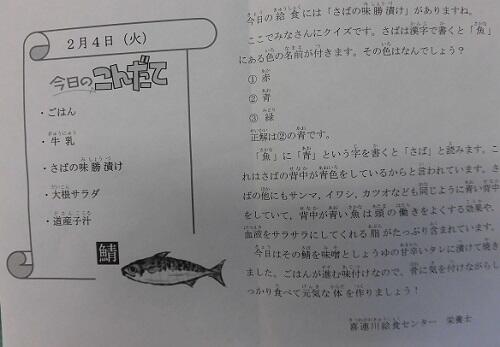 2月4日（火）
今日のこんだて
・ごはん
・牛乳
・さばの味勝漬け
・大根サラダ
・道産子汁
鯖
今日の給食には「さばの味勝漬け」がありますね。
ここでみなさんにクイズです。さばは漢字で書くと「魚」
にある色の名前が付きます。その色はなんでしょう？
① 赤
② 青
③ 緑
正解は②の青です。
「魚」に「青」という字を書くと「さば」と読みます。こ
れはさばの背中が青色をしているからと言われています。さ
ばの他にもサンマ、イワシ、カツオなども同じように青い背中
をしていて、背中が青い魚は頭の働きをよくする効果や、
血液をサラサラにしてくれる脂がたっぷり含まれています。
今日はその鯖を味噌としょうゆの甘辛いタレに漬けて焼き
ました。ごはんが進む味付けなので、骨に気を付けながらし
っかり食べて元気な体を作りましょう！
喜連川給食センター　栄養士